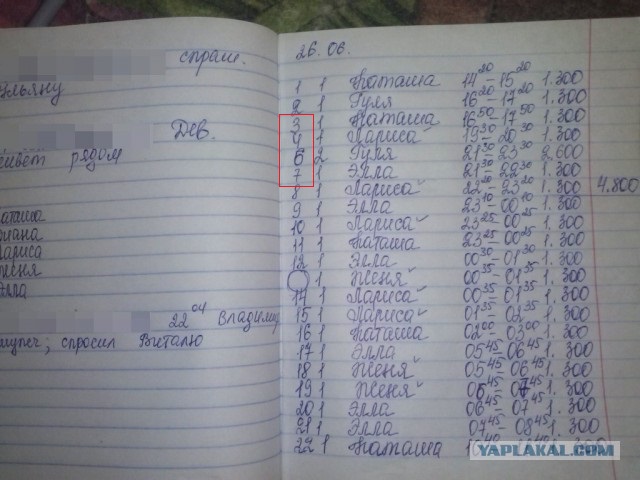 спраш.
ульяну
Дев.
живёт рядом
Наташа
Лариса
Женя
Элла
22 04 Владимир
спросил Виталю
26.06.
1 1 Наташа 14 20 - 15 20 1.300
2 1 Гуля 16 20 - 17 20 1.300
3 1 Наташа 16 50 - 17 50 1.300
4 1 Лариса 19 30 - 20 30 1.300
6 2 Гуля 21 30 - 23 30 2.600
7 1 Элла 21 30 - 22 30 1.300
8 1 Лариса 22 20 - 23 20 1.300 4.800
9 1 Элла 23 10 - 00 10 1.300
10 1 Лариса 23 25 - 00 25 1.300
11 1 Наташа 23 25 - 00 25 1.300
12 1 Элла 00 30 - 01 30 1.300
1 Женя 00 35 - 01 35 1.300
14 1 Лариса 00 35 - 01 35 1.300
15 1 Лариса 01 35 - 02 35 1.300
16 1 Наташа 02 00 - 03 00 1.300
17 1 Элла 05 45 - 06 45 1.300
18 1 Женя 05 45 - 06 45 1.300
19 1 Женя 06 45 - 07 45 1.300
20 1 Элла 06 45 - 07 45 1.300
21 1 Элла 07 45 - 08 45 1.300
22 1 Наташа
YAPLAKAL.COM